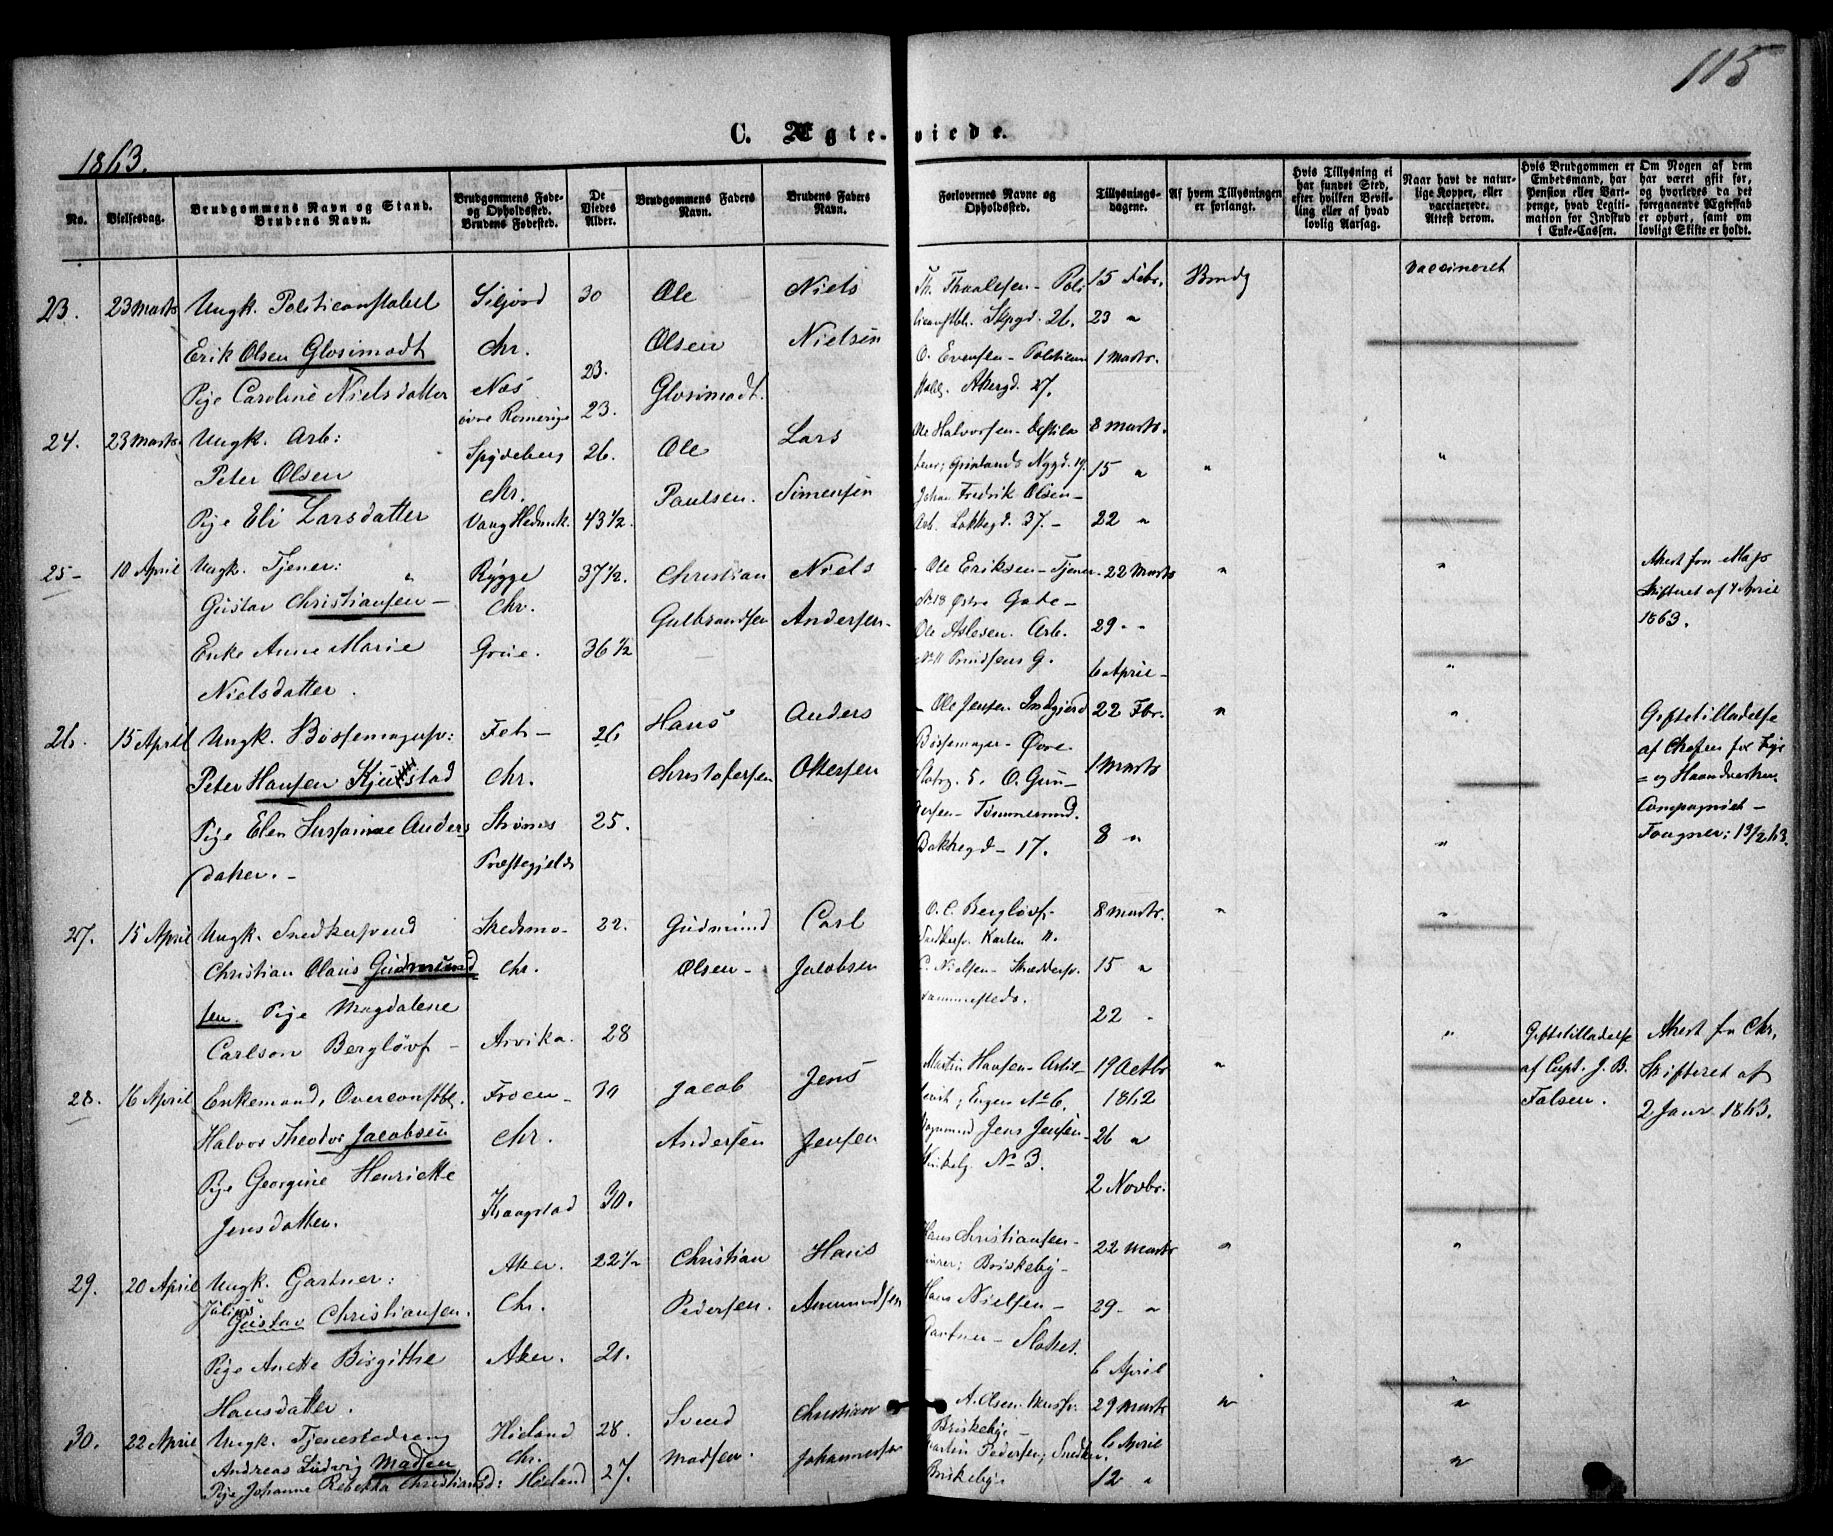 115
C. Ægte-viede.
1863.
No.
Vielsesdag.
Brudgommens Navn og Stand.
Brudens Navn.
Brudgommens Føde-
og Opholdssted.
Brudens Fødested.
De
Viedes
Alder.
Brudgommens Faders
Navn.
Brudens Faders
Navn.
Forlovernes Navne og
Opholdssted.
Tillysnings-
dagene.
Af hvem Tillysningen
er forlangt.
Hvis Tillysning ei
har fundet Sted,
efter hvilken Bevil-
ling eller af hvad
lovlig Aarsag.
Naar havt de natur-
lige Kopper, eller
vaccinerede.
Attest derom.
Hvis Brudgommen er
Embedsmand, har
Pension eller Vart-
penge, hvad Legiti-
mation for Indskud
i Enke-Cassen.
Om Nogen af dem
har været gift før,
og hvorledes da det
foregaaende Ægteskab
er ophørt, samt om
lovligt Skifte er holdt.
23. 23 Marts Ungk. Politiconstabel Siljord 30 Ole Niels Th. Thoalesen - Poli 15 Febr. Brudg vaccineret
ticonstbl. Skpgd. 26. 23 "
Erik Olsen Glosimodt Chr. Olsen Nielsen O. Evensen - Politicon 1 Marts.
Pige Caroline Nielsdatter Næs 23. Glosimodt. Akergd. 27.
øvre Romerige 23.
24. 23 Marts Ungk. Arb: Spydeberg 26. Ole Lars Ole Halvorsen - Destila 8 Marts.
Peter Olsen Chr. Paulsen. Simensen teur; Grønlands Nygd. 19. 15 " " "
Johan Fredrik Olsen -
Pige Eli Larsdatter Vang Hedmk. 43 1/2. Arb. Lakkegd. 37. - 22 "
25 - 10 April Ungk. Tjener: Rygge 37 1/2. Christian Niels Ole Eriksen - Tjener - 22 Marts " " Akert fra Maps
Gustav Christiansen - Chr. Gulbrandsen Andersen - No 18 Østre Gade - Skifteret af 7 April
Ole Aslesen. Arb. 29 - - 1863.
Enke Anne Marie Grue. 36 1/2 No 11 G. 6 April - "
Nielsdatter.
26. 15 April Ungk. Bøssemagersv: Fet - 26 Hans Anders - Ole Jensen 22 Fbr. " " Giftetilladelse
Bøssemager - Øvre af Chefen for Tøje
Peter Hansen Kjulstad Chr. Christofersen Ottersen Slotsg. 5. O. Gun 1 Marts = og Haandverker
dersen - Tømmermd. Compagniet -
Pige Elen Susanne Anders Strøms 25. Bakkegd - 17. 8 " " Fougner; 13/2 63.
datter. - Præstegjeld
27. 15 April Ungk. Snedkersvend Skedsmo - 22. Gudmund Carl O. C. Bergløvf - 8 Marts. " "
Snedkersv. Karlen 11.
Christian Olaus Gudmund Chr. Olsen - Jacobsen C. Nielsen - Skrædersv. 15 "
sen. Pige Magdalene sammesteds. 22 "
Carlson Bergløvf - Arvika. 28 " Giftetilladelse Akert fra Chr.
28. 16 April Enkemand, Overconstbl. Froen - 30 Jacob Jens Martin Hansen - Artil- 19 Octbr " af Capt. J. B. Skifteret af
lerist; Engen No 6. 1862 Falsen. 2 Janr 1863.
Halvor Theodor Jacobsen Chr. Andersen Jensen Vognmand Jens Jensen - 26 "
No 3.
Pige Georgine Henriette Kraagstad 30. 2 Novbr.
Jensdatter.
29. 20 April Ungk. Gartner: Aker. 22 1/2 Christian Hans Hans Christiansen - 22 Marts " "
Murer; Briskeby -
Julius
Gustav Christiansen. Chr. Pedersen. Amundsen Hans Nielsen - 29 - "
Gartner - Slottet.
Pige Anette Birgitte Aker. 21. 6 April
Hansdatter.
30. 22 April Ungk. Tjenestedreng Høland 28. Svend Christian A. Olsen 29 Marts " "
Briskebye -
Andreas Ludvig Madsen Chr. Madsen. Johannesen Martin Pedersen, Snedker. 6 April
Pige Johanne Rebekka Christiansd: Høland 27. Briskebye 12 " "